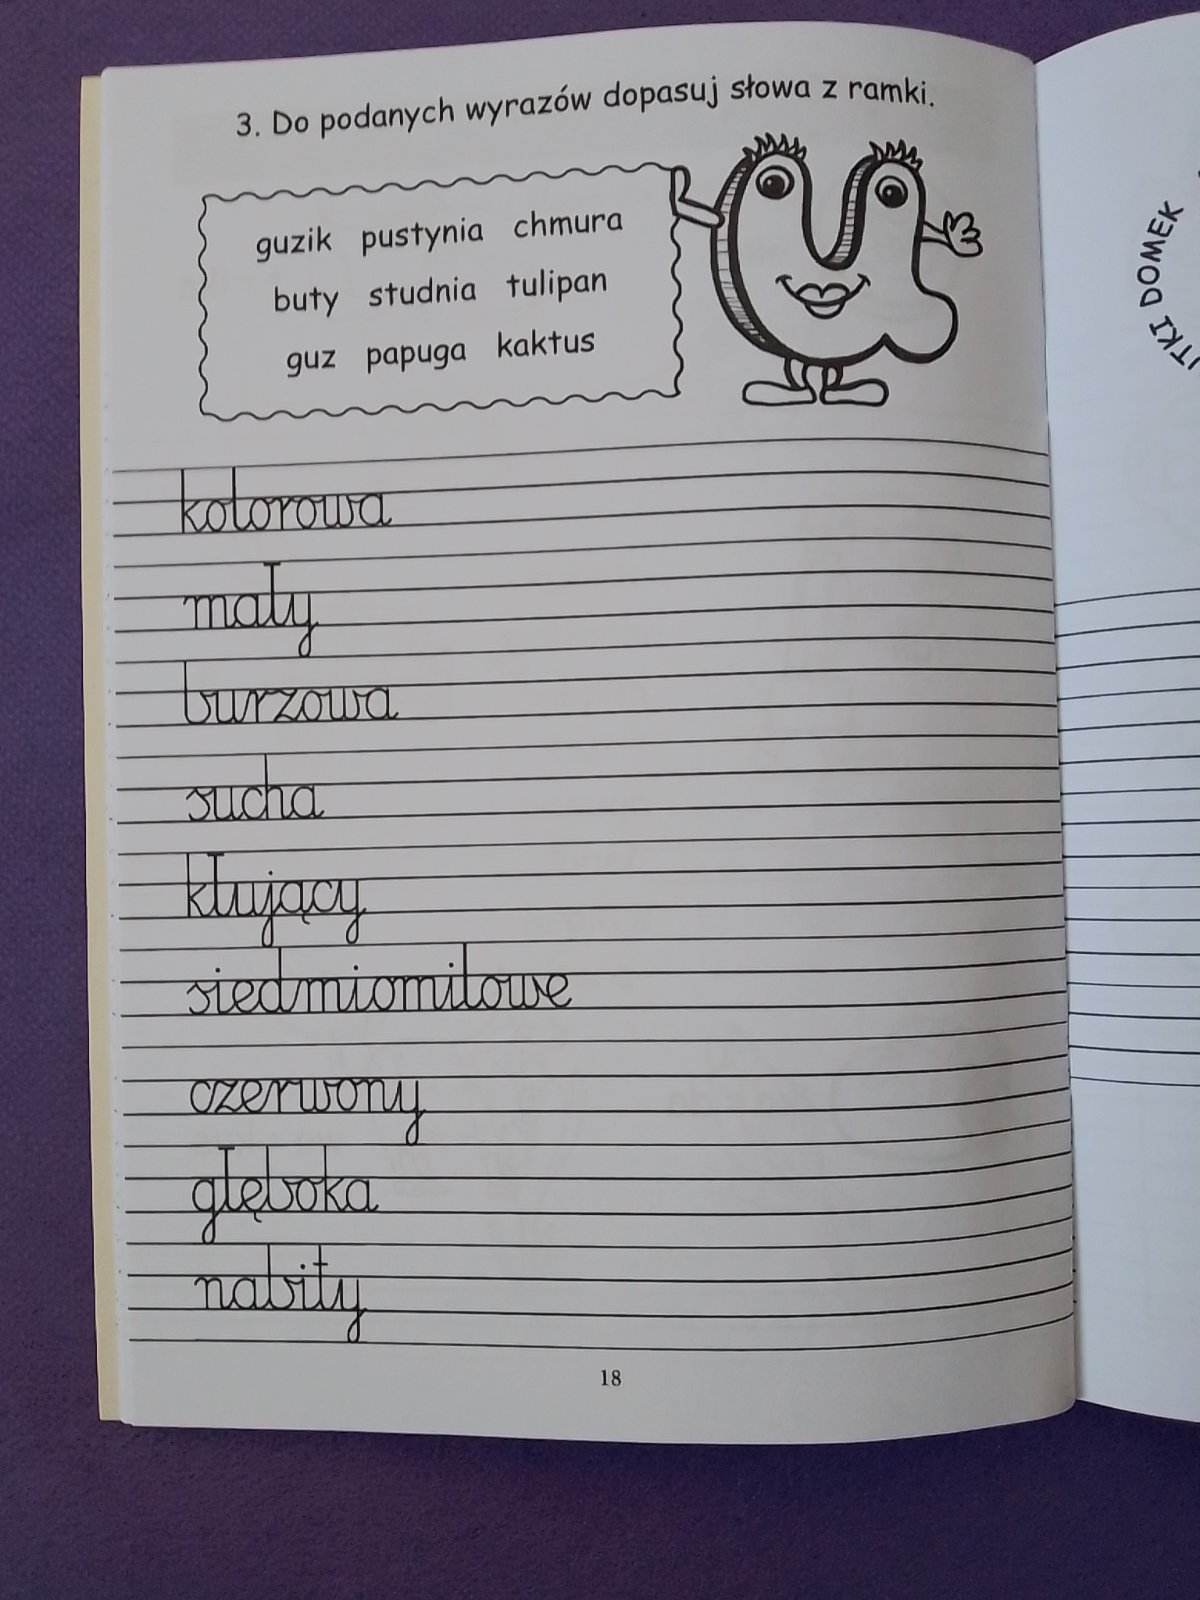 3. Do podanych wyrazów dopasuj słowa z ramki.
guzik pustynia chmura
buty studnia tulipan
guz papuga kaktus
kolorowa
mały
burzowa
sucha
kłujący
siedmiomilowe
czerwony
głęboka
nabity
18
ITKI DOMEK